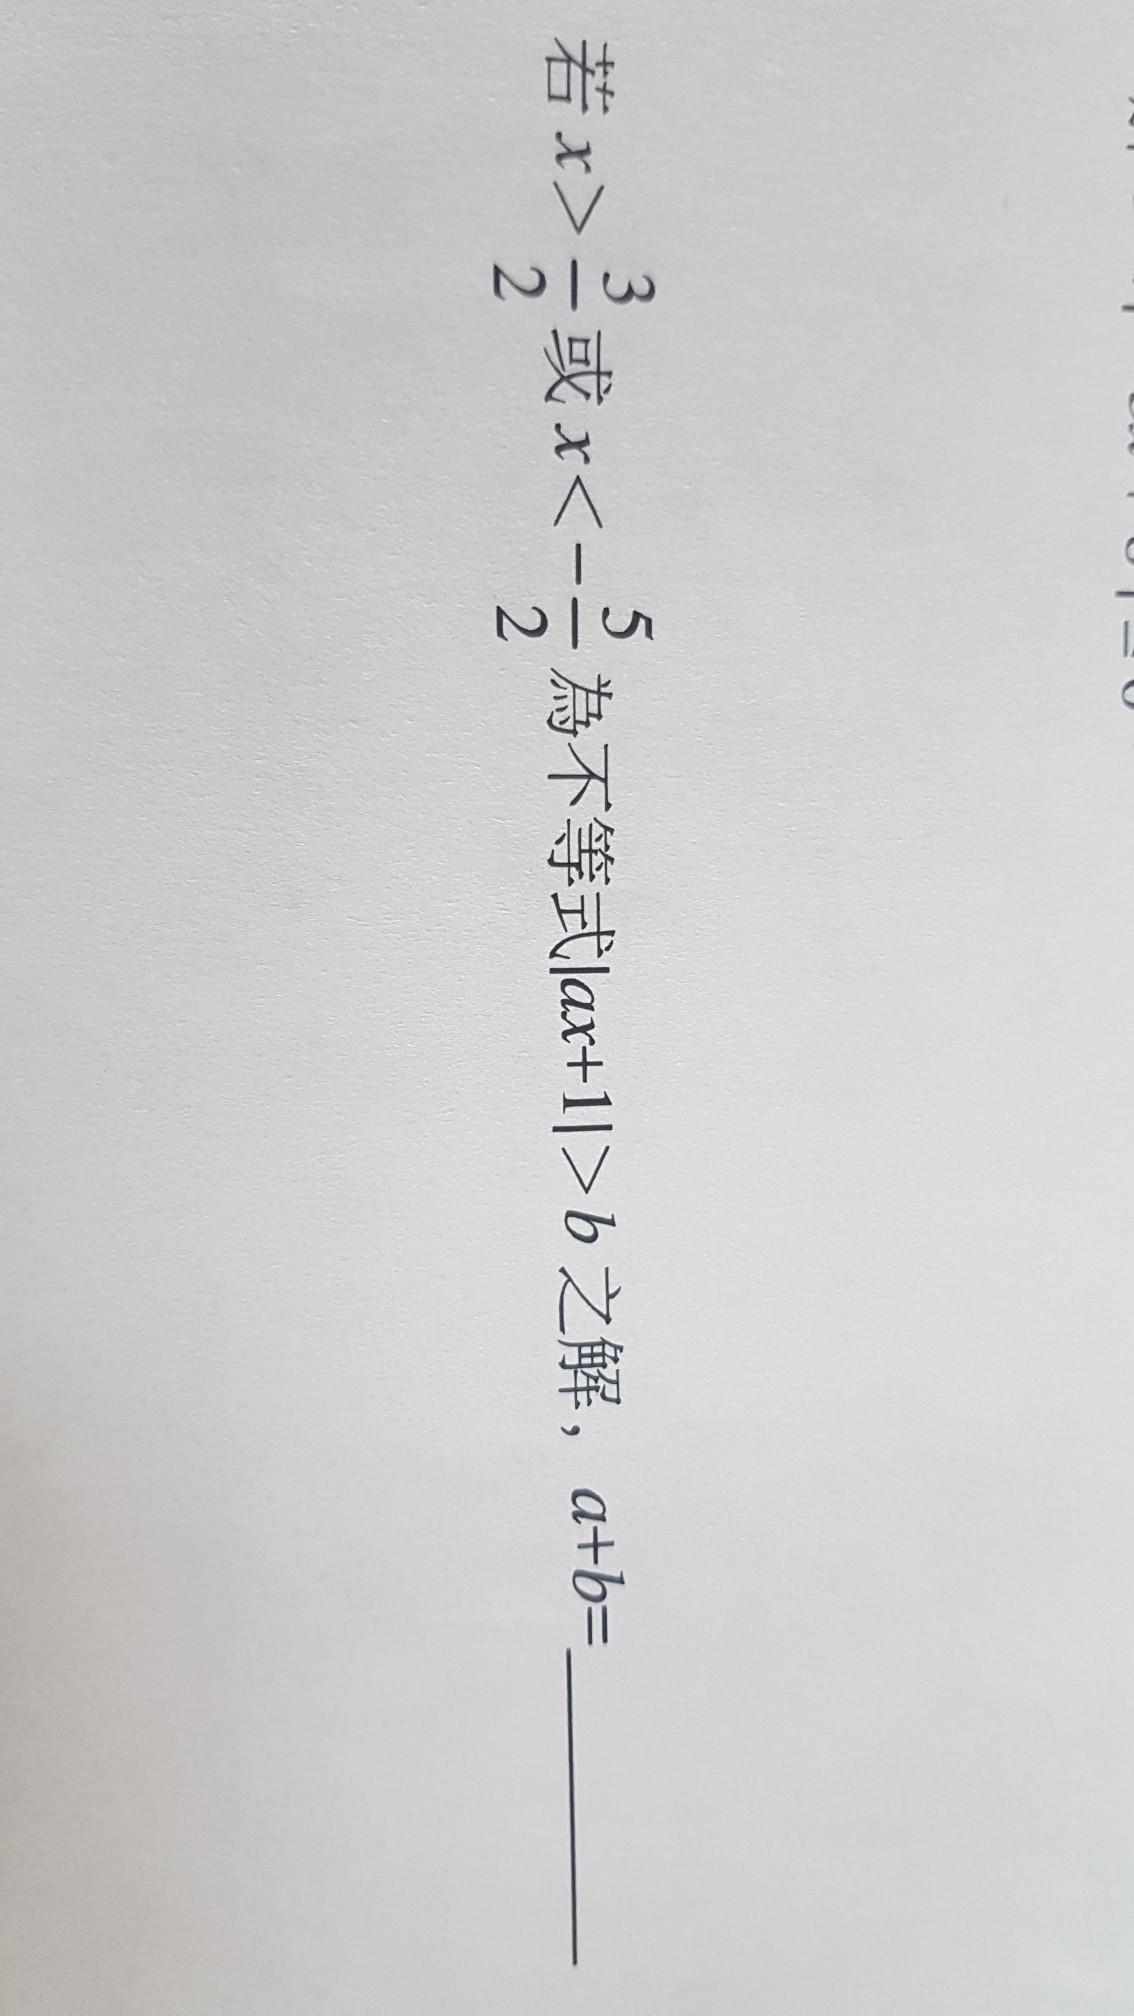 若 x > 3/2 或 x < -5/2 為不等式|ax+1| > b 之解，a+b=______